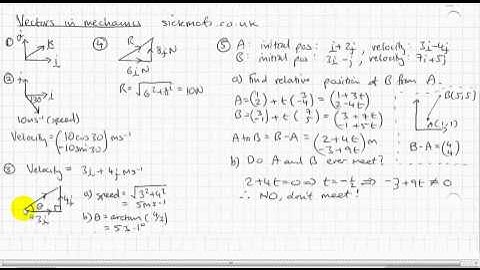 Vectors in mechanics sickmaths.co.uk
①
j
i
②
30
10ms⁻¹ (speed)
Velocity = (10cos30 / -10sin30) ms⁻¹
③ Velocity = 3i + 4j ms⁻¹
θ
3i
4j
a) speed = √3²+4²
= 5ms⁻¹
b) θ = arctan(4/3)
= 53.1°
④
R
8j N
6i N
R = √6²+8² = 10N
⑤ A: initial pos: i+2j, velocity: 3i-4j
B: initial pos: 3i-j, velocity: 7i+5j
a) Find relative position of B from A.
A = (1 / 2) + t(3 / -4) = (1+3t / 2-4t)
B = (3 / -1) + t = (3+7t / -1+5t)
A to B = B-A = (2+4t / -3+9t) m
B(5,5)
A(1,1)
B-A = (4 / 4)
b) Do A and B ever meet?
2+4t=0 ⇒ t=-½ ⇒ -3+9t ≠ 0
∴ NO, don't meet!